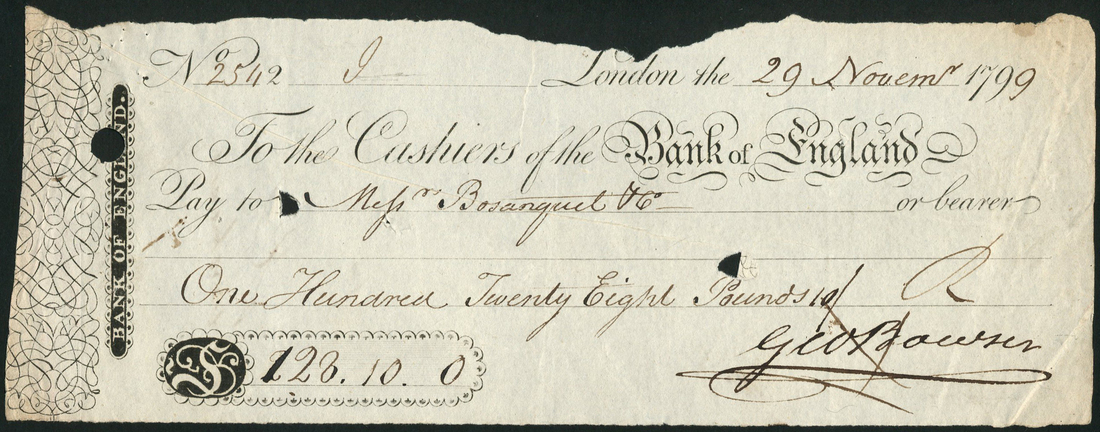 BANK OF ENGLAND.
No 2542 I London the 29 Novemr 1799
To the Cashiers of the Bank of England
Pay to Messrs Bosanquet & Co or bearer
One Hundred Twenty Eight Pounds 10/ R
128.10.0
Geo Bowser